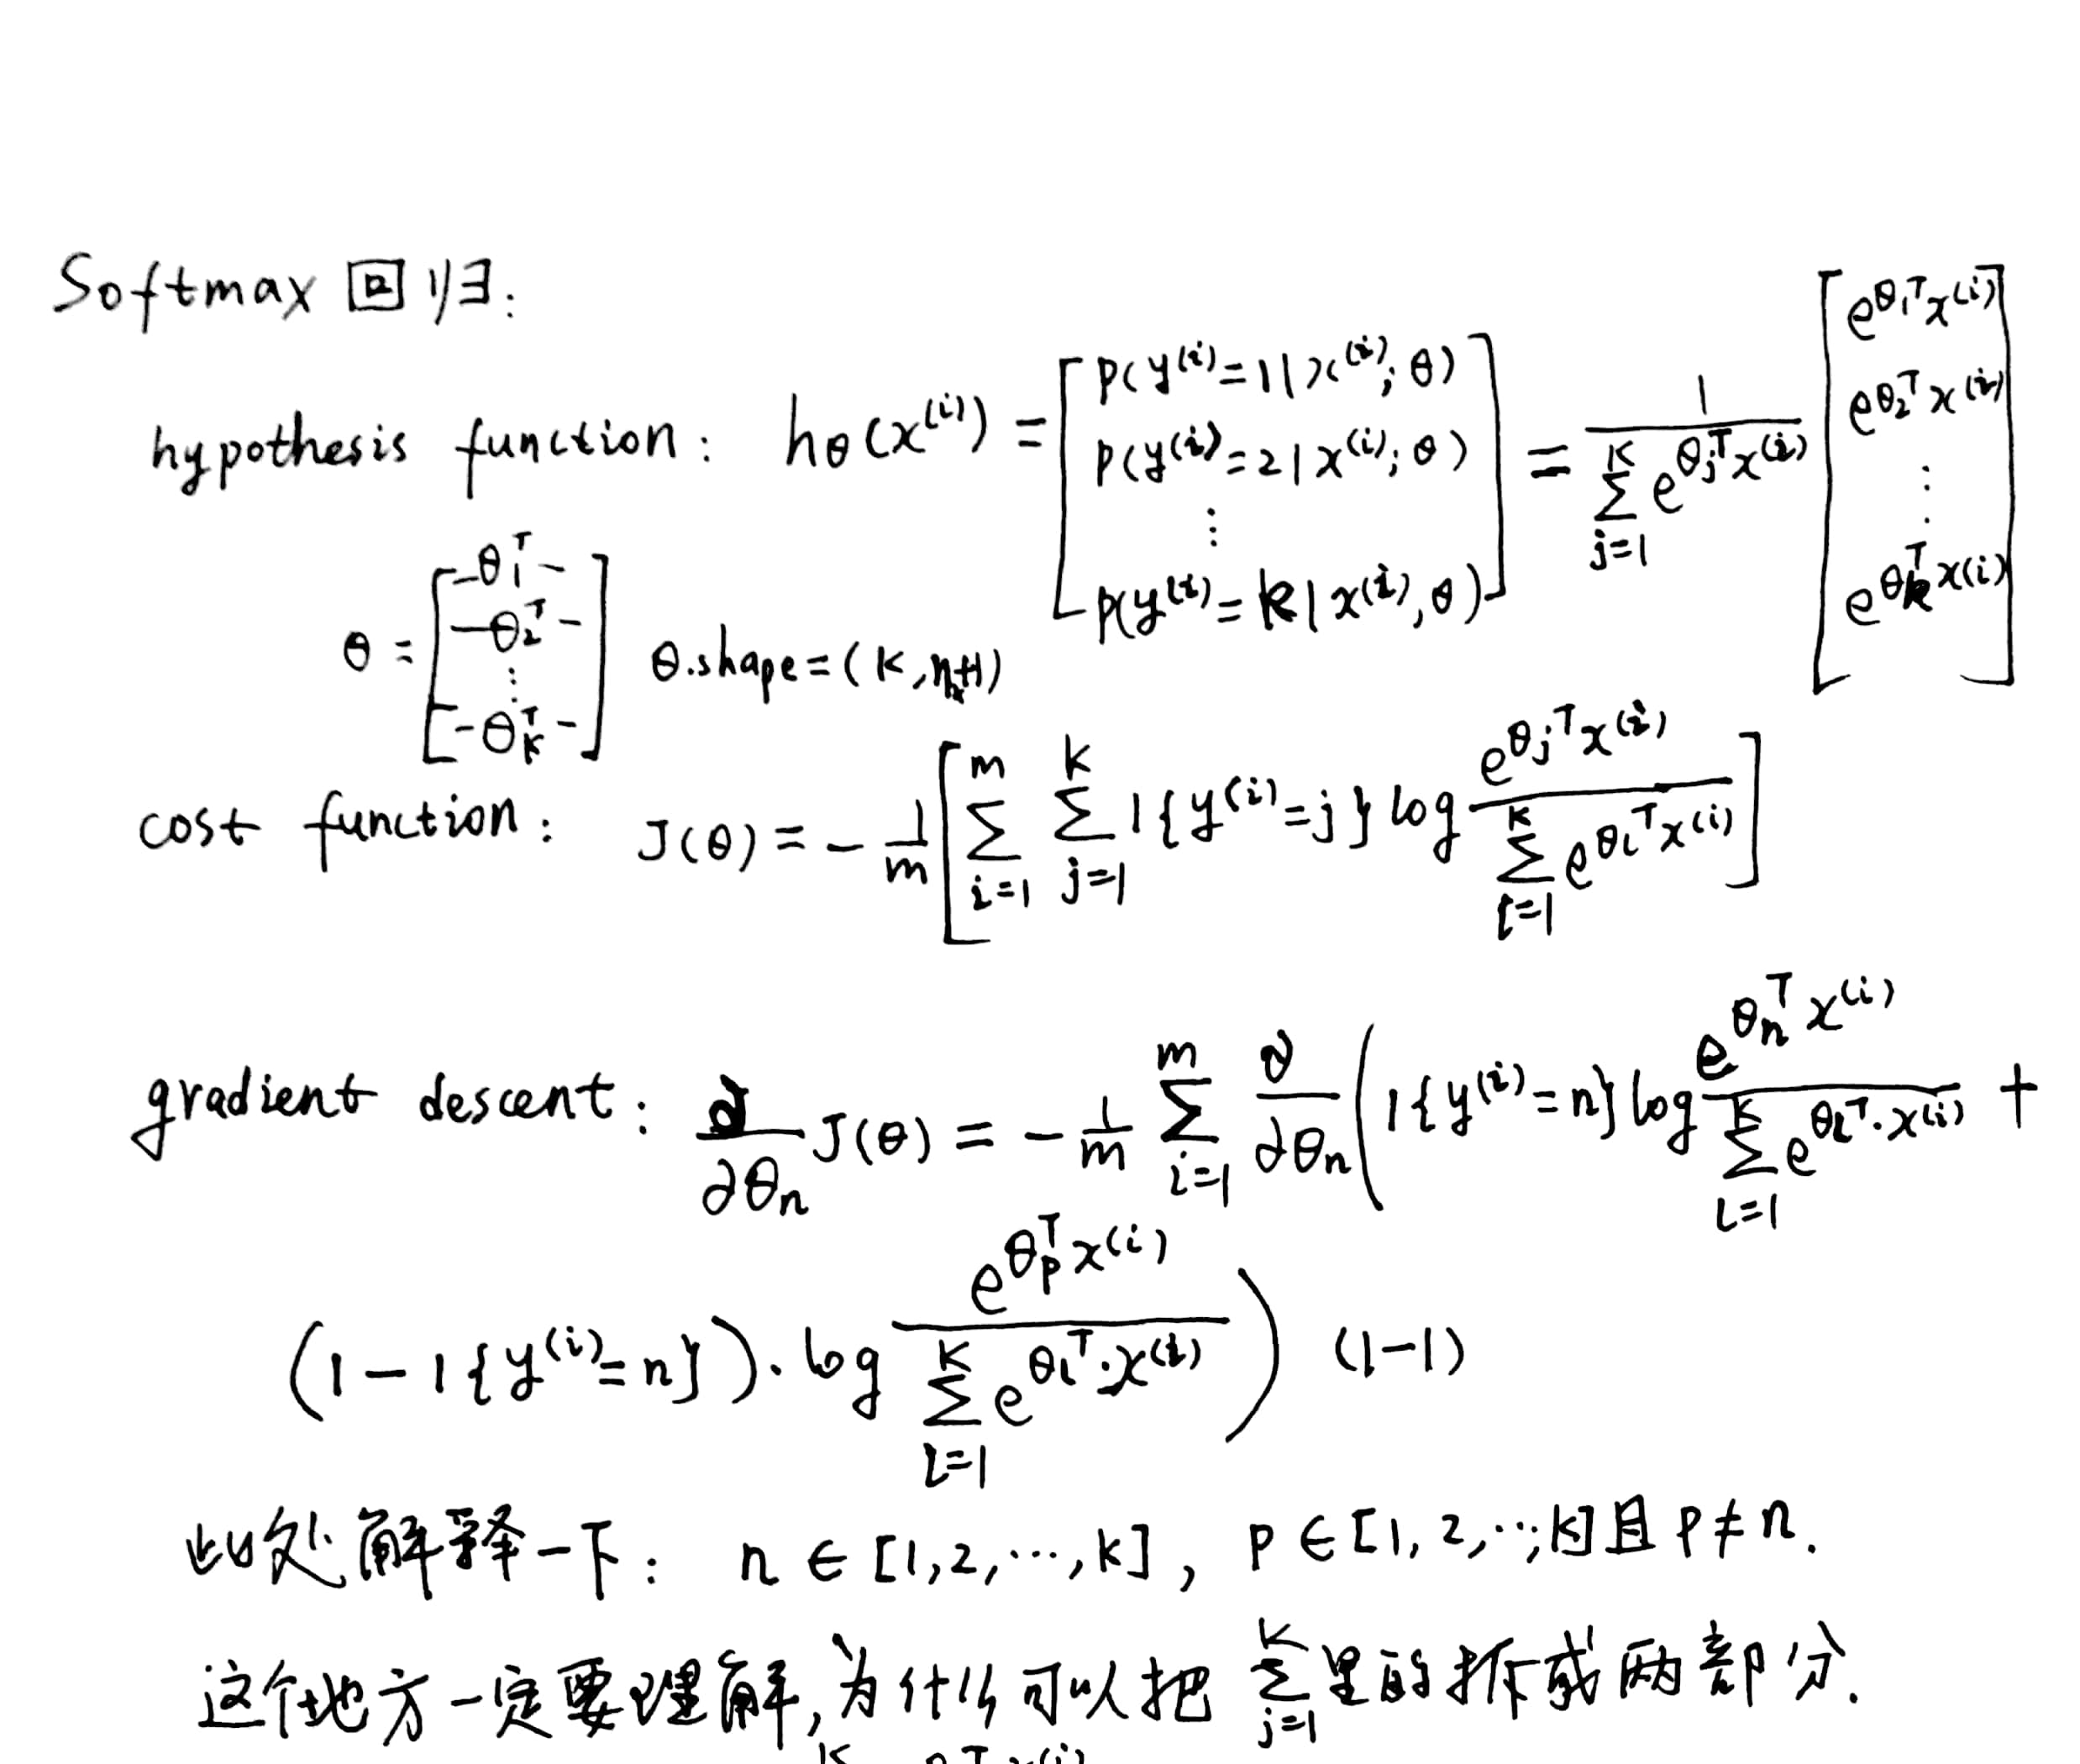 Softmax 回归:
hypothesis function: hθ(x^(i)) = [p(y^(i)=1|x^(i);θ) p(y^(i)=2|x^(i);θ) ⋮ p(y^(i)=k|x^(i),θ)] = 1/(∑_{j=1}^{K} e^{θ_j^T x^(i)}) [e^{θ_1^T x^(i)} e^{θ_2^T x^(i)} ⋮ e^{θ_k^T x^(i)}]
θ = [-θ_1^T- -θ_2^T- ⋮ -θ_K^T-] θ.shape=(K,n_x+1)
cost function: J(θ) = -1/m [∑_{i=1}^{m} ∑_{j=1}^{K} 1{y^(i)=j} log (e^{θ_j^T x^(i)})/(∑_{l=1}^{K} e^{θ_l^T x^(i)})]
gradient descent: ∂/∂θ_n J(θ) = -1/m ∑_{i=1}^{m} ∂/∂θ_n (1{y^(i)=n} log (e^{θ_n^T x^(i)})/(∑_{l=1}^{K} e^{θ_l^T·x^(i)}) +
(1-1{y^(i)=n})·log (e^{θ_p^T x^(i)})/(∑_{l=1}^{K} e^{θ_l^T·x^(i)})) (1-1)
此处解释一下: n∈[1,2,…,K], p∈[1,2,…,K]且p≠n.
这个地方一定要理解,为什么可以把 ∑_{j=1}^{K} 里的拆成两部分.